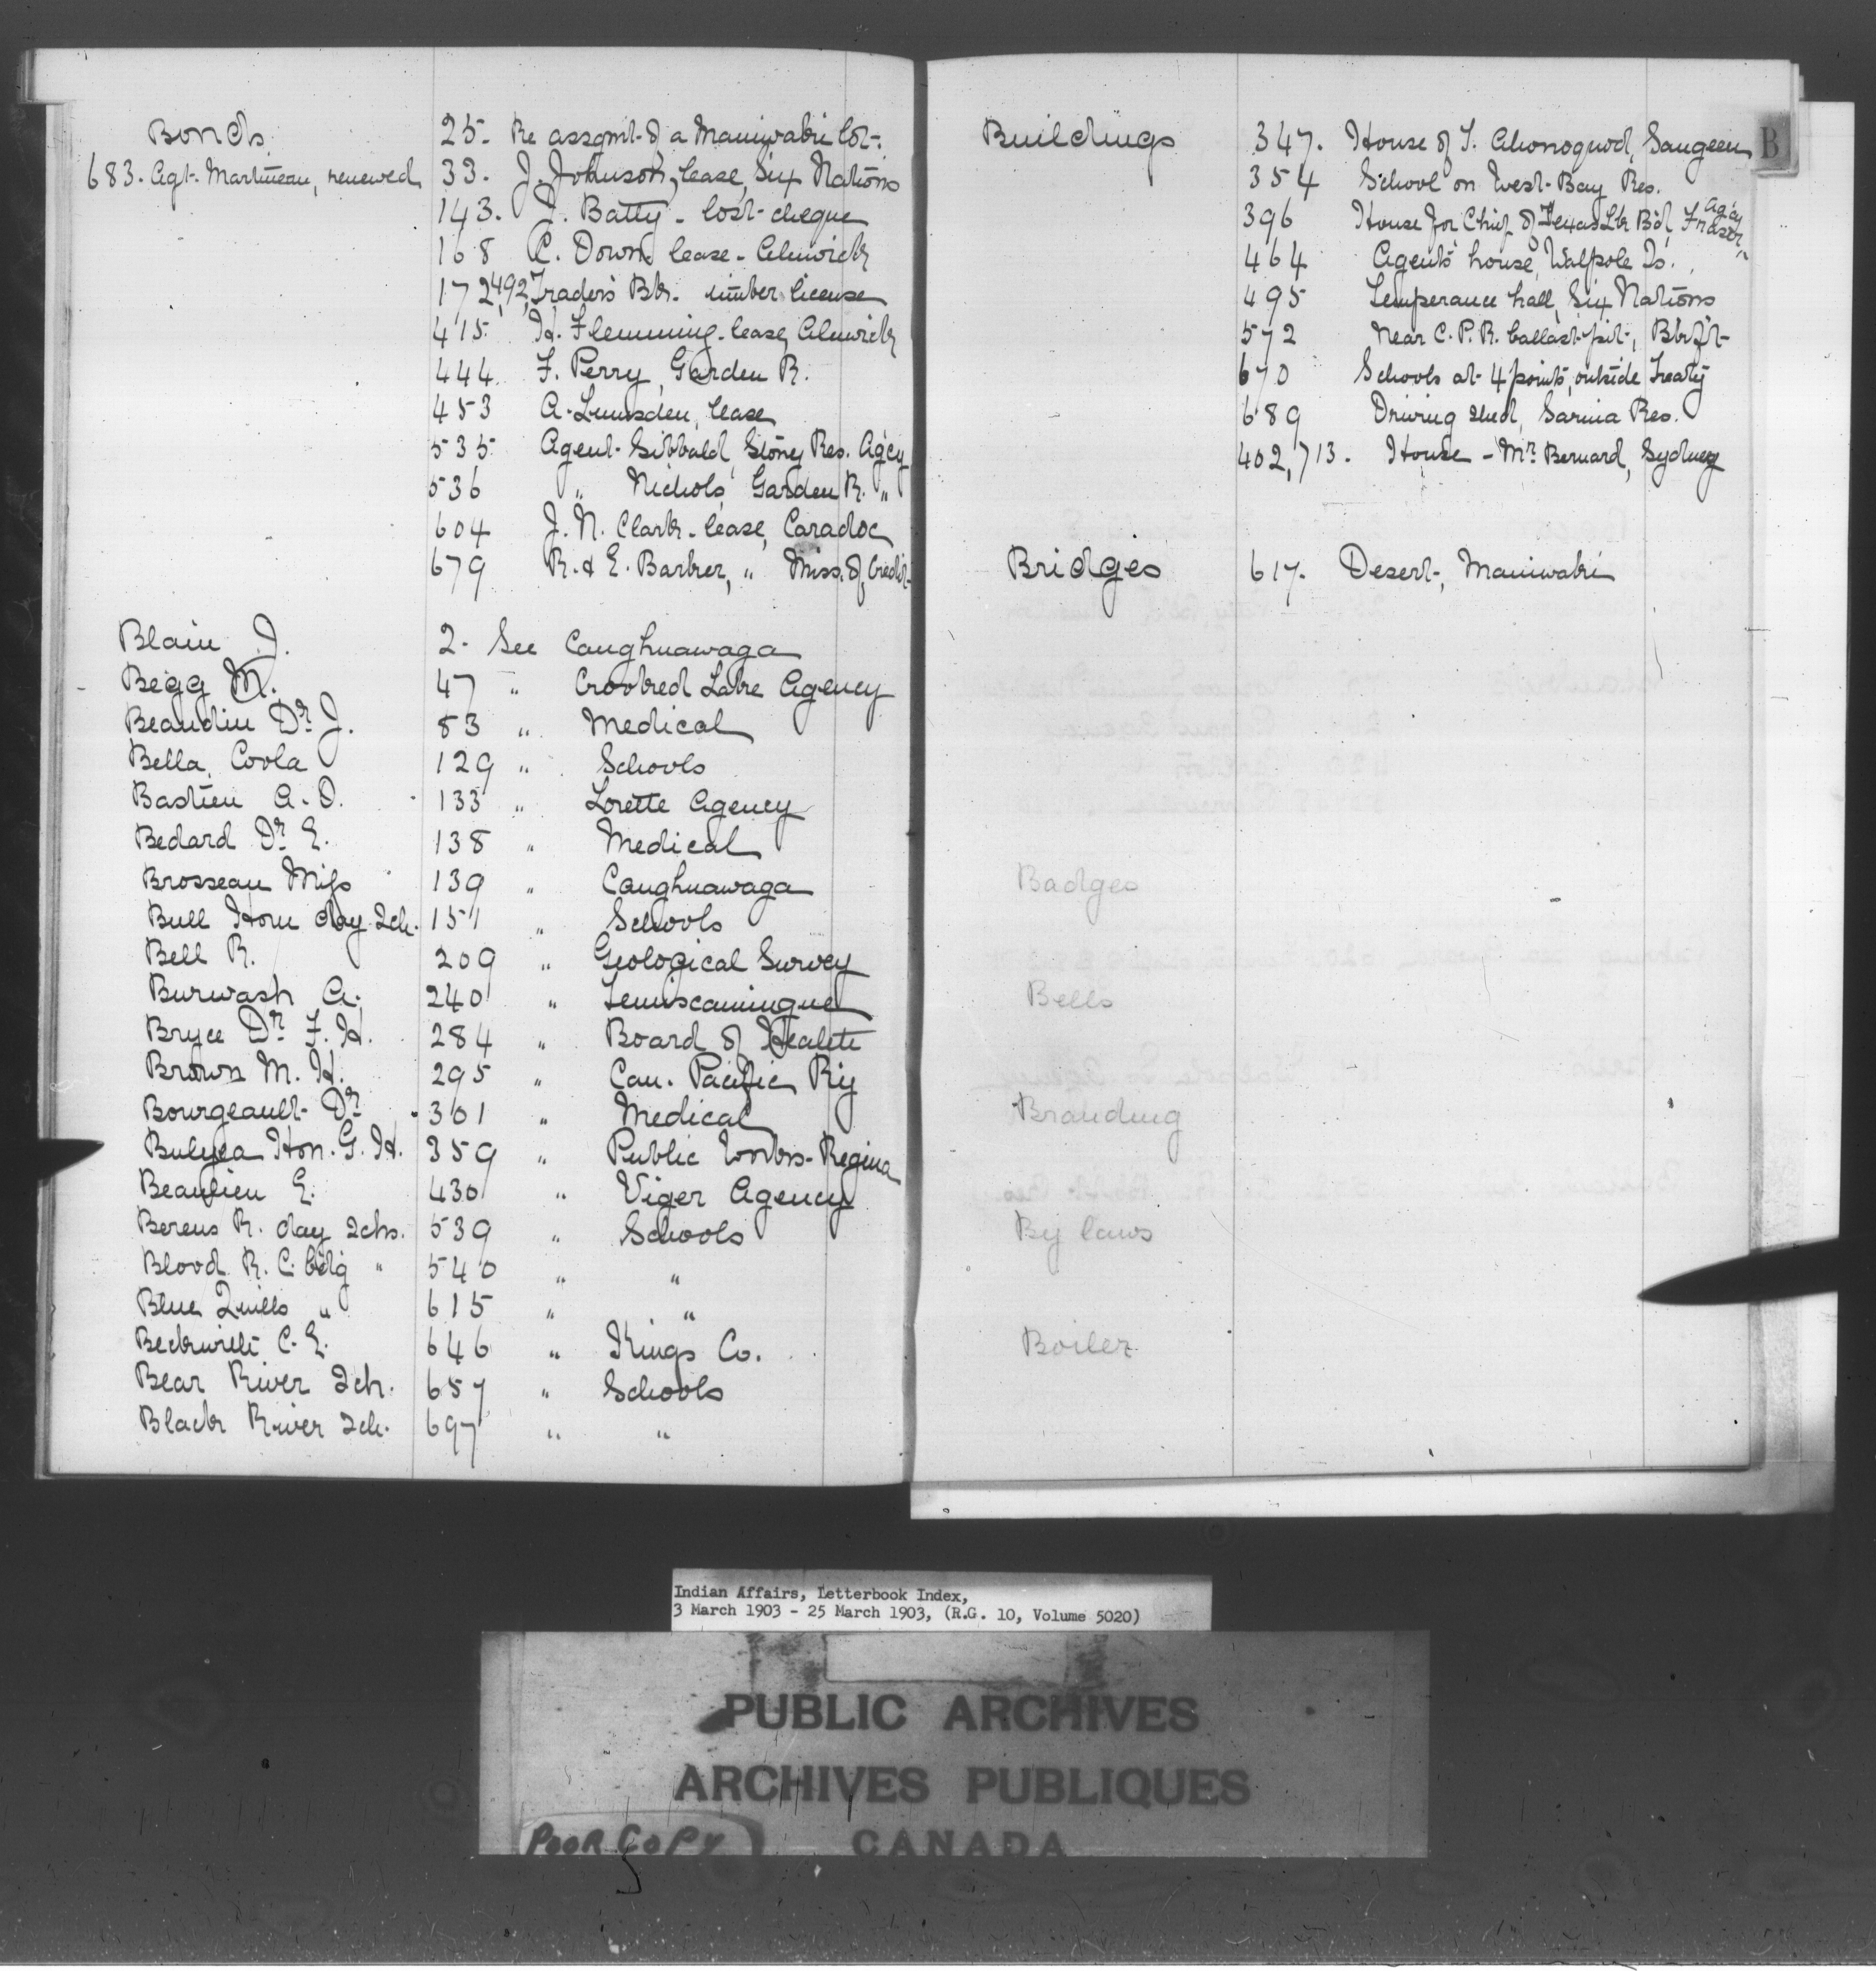 Bonds. 25. Re assgmt. of a Maniwaki lot.
683. Agt. Martineau, renewed 33. J. Johnson, lease, Six Nations
143. J. Batty - lost cheque
168 C. Down lease - Alnwick
172,492, Traders Bk. timber license
415. H. Flemming - lease, Alnwick
444. F. Perry, Garden R.
453 A. Lumsden, lease
535 Agent Sibbald, Stoney Res. Agcy
536 " Nichols Garden R. "
604 J. N. Clark - lease, Caradoc
679 R. & E. Barber, " Miss. of Credit
Blain J. 2. See Caughnawaga
Begg M. 47 " Crooked Lake Agency
Beaudin Dr J. 83 " Medical
Bella Coola 129 " Schools
Bastien A. O. 133 " Lorette Agency
Bedard Dr E. 138 " Medical
Brosseau Miss 139 " Caughnawaga
Bull Horn day Sch. 151 " Schools
Bell R. 209 " Geological Survey
Burwash A. 240 " Temiscamingue
Bryce Dr F. H. 284 " Board of Health
Brown M. H. 295 " Can. Pacific Ry
Bourgeault Dr 301 " Medical
Bulyea Hon. G. H. 359 " Public Works - Regina
Beaulieu E. 430 " Viger Agency
Berens R. day Schs. 539 " Schools
Blood R. C. bdg " 540 " "
Blue Quills " 615 " "
Beckwith C. E. 646 " Kings Co.
Bear River Sch. 657 " Schools
Black River Sch. 697 " "
Buildings 347. House of T. Saugeen
354 School on West Bay Res.
396 House for Chief of Texas Lk Bd, Fraser Agcy
464 Agent's house, Walpole Is.
495 Temperance hall, Six Nations
572 Near C. P. R. ballast pit, Blkft
670 Schools at 4 points, outside Treaty
689 Driving shed, Sarnia Res.
402,713. House - Mr Bernard, Sydney
Bridges 617. Desert, Maniwaki
Badges
Bells
Branding
By laws
Boiler
B
Indian Affairs, Letterbook Index,
3 March 1903 - 25 March 1903, (R.G. 10, Volume 5020)
PUBLIC ARCHIVES
ARCHIVES PUBLIQUES
CANADA
POOR COPY